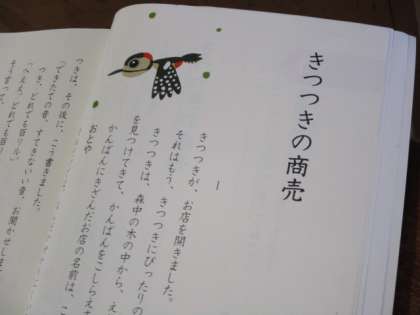 きつつきの商売
1
きつつきが、お店を開きました。
それはもう、きつつきにぴったりの
きつつきは、森中の木の中から、え
を見つけてきて、かんばんをこしらえ
かんばんにきざんだお店の名前は、こ
おとや
つきは、その後に、こう書きました。
「できたての音、すてきないい音、お聞かせします
つき、どれでも百リル。」
「へええ。どれでも百リル
そう言って、